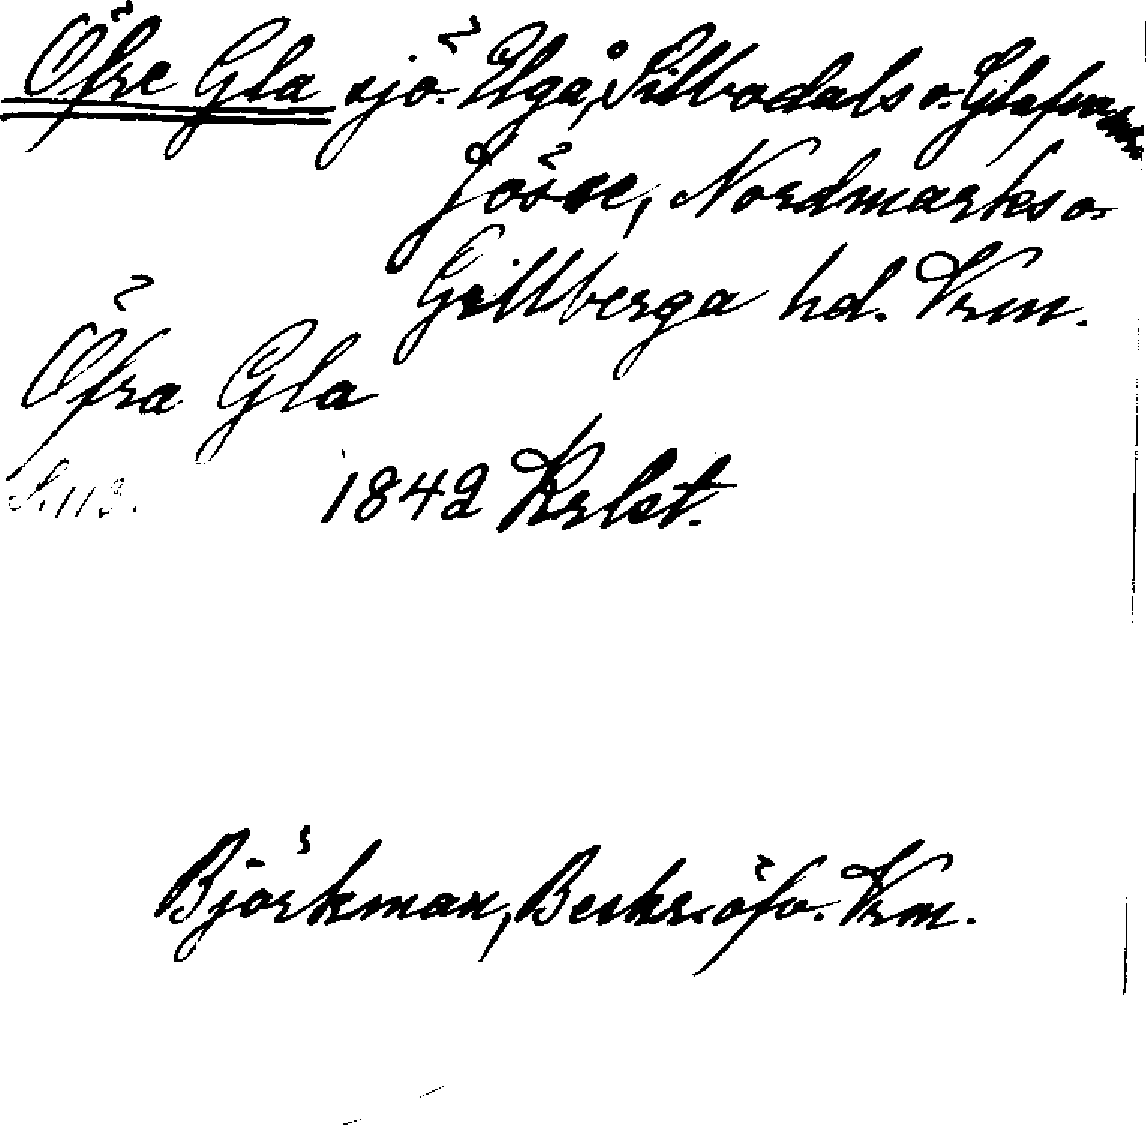 Öfre Gla sjö. Elgå, Silbodals o. Glafva
Jösse, Nordmarks o.
Gillberga hd. Vrm.
Öfra Gla
S. 113. 1842 Krlst.
Björkman, Beskr. öfv. Vrm.